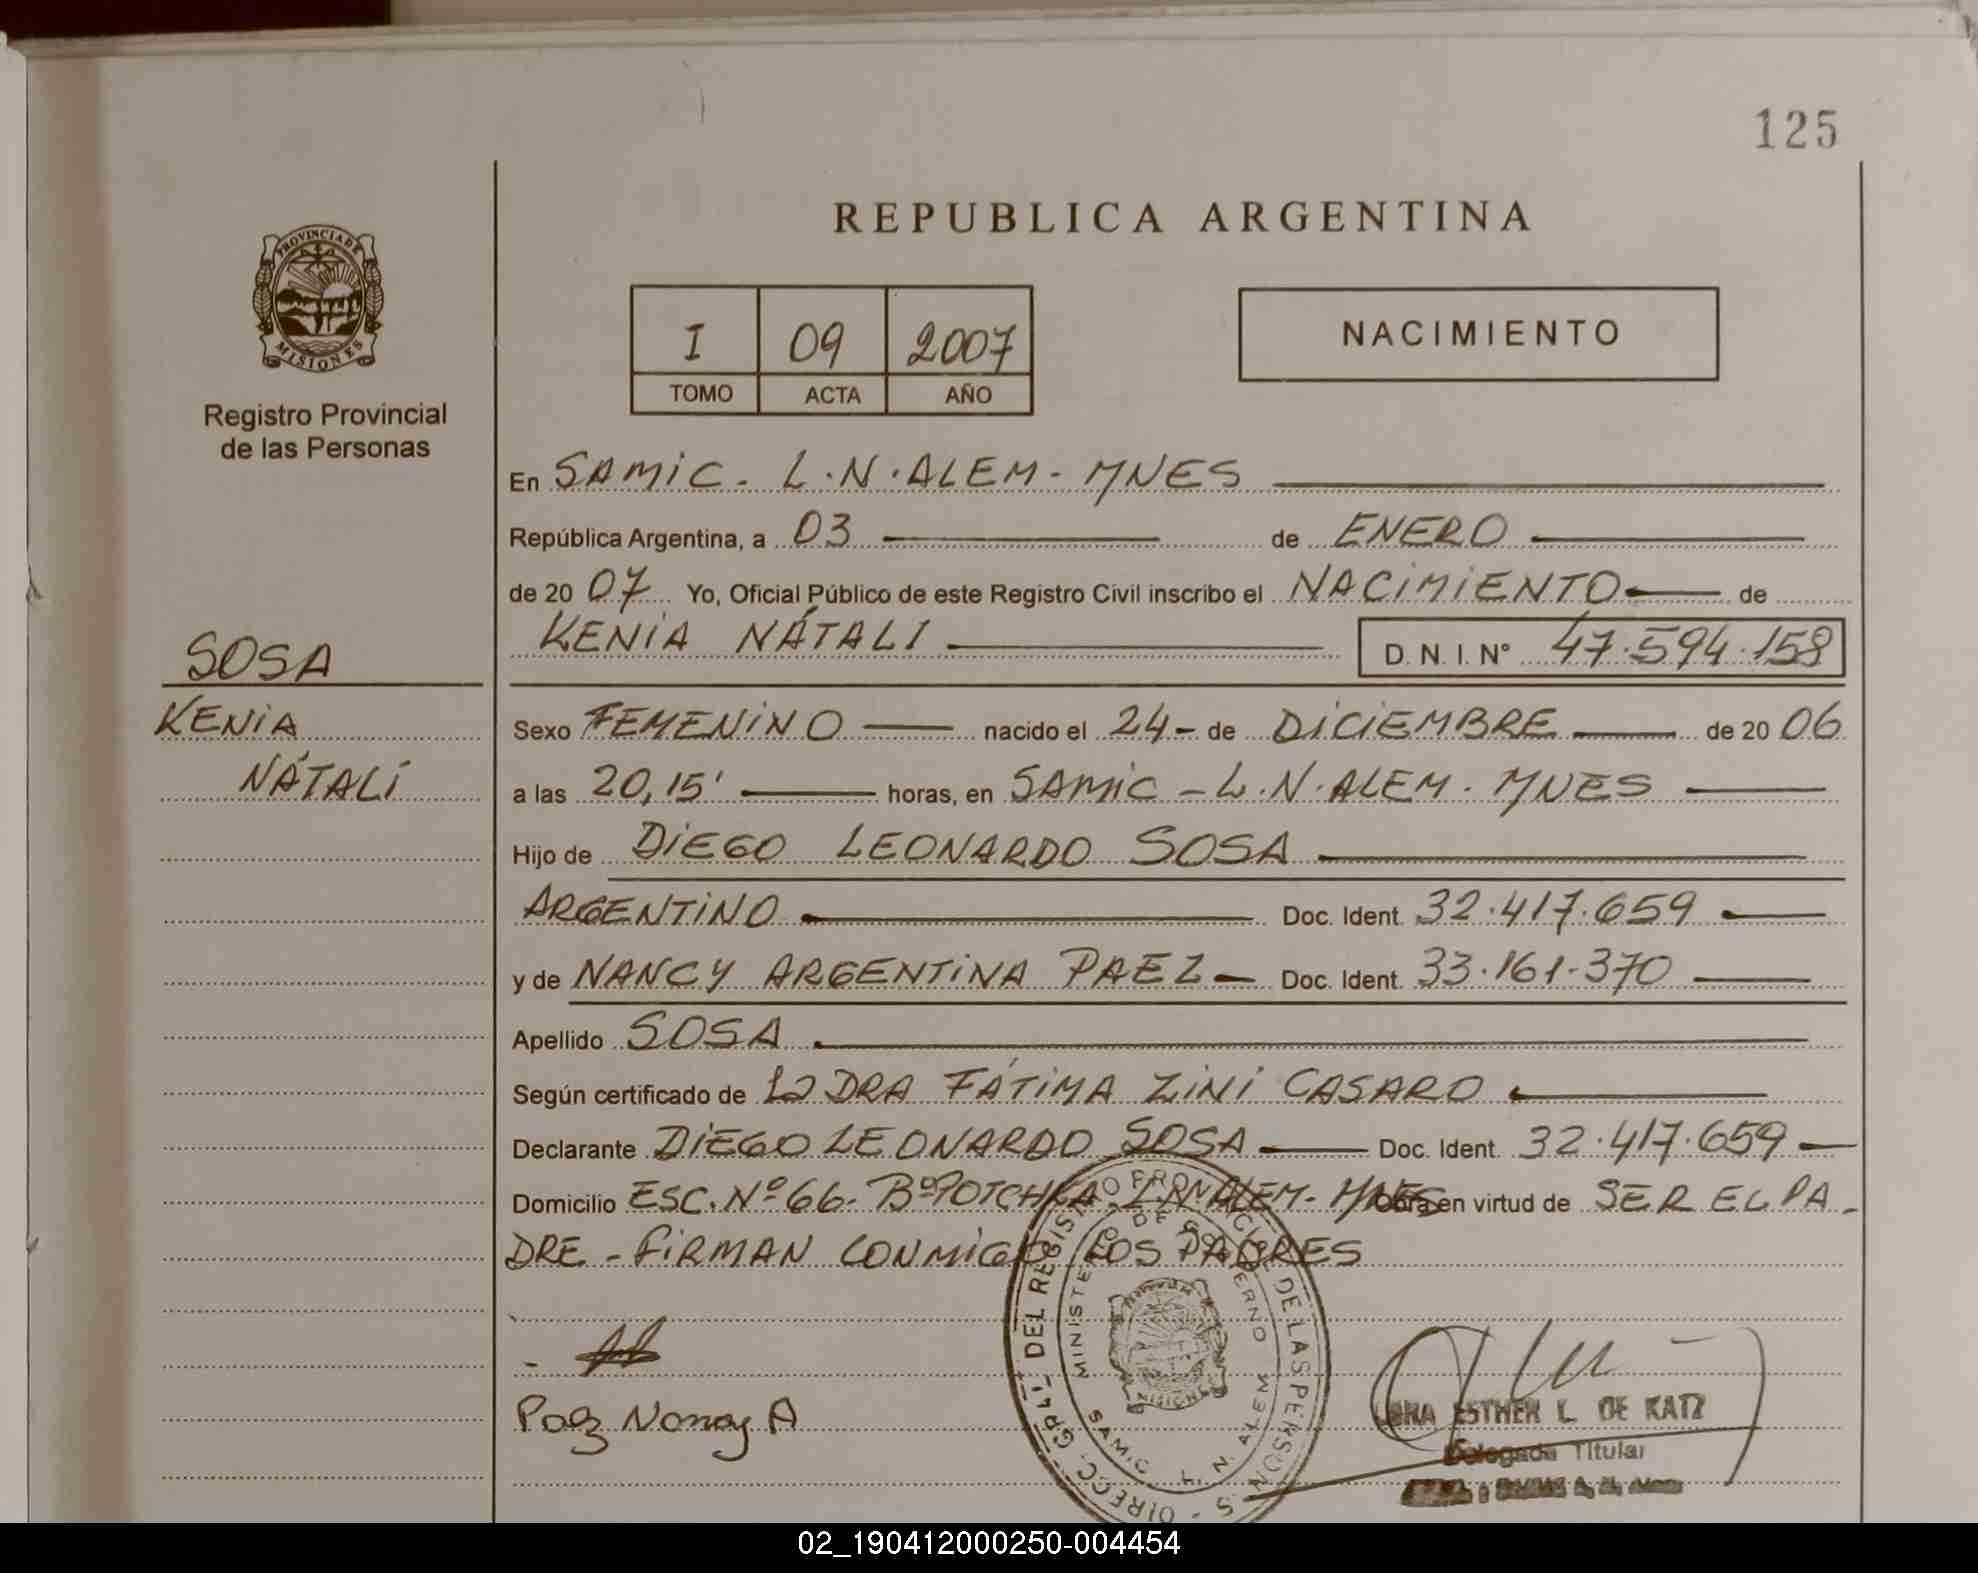 125
REPUBLICA ARGENTINA
PROVINCIA DE
MISIONES
Registro Provincial
de las Personas
I 09 2007
TOMO ACTA AÑO
NACIMIENTO
En SAMIC - L.N.ALEM - MNES
República Argentina, a 03 de ENERO
de 2007 Yo, Oficial Público de este Registro Civil inscribo el NACIMIENTO de
KENIA NÁTALI D.N.I.Nº 47.594.158
SOSA
KENIA
NÁTALI
Sexo FEMENINO nacido el 24 - de DICIEMBRE de 2006
a las 20,15' horas, en SAMIC - L.N.ALEM - MNES
Hijo de DIEGO LEONARDO SOSA
ARGENTINO Doc. Ident. 32.417.659
y de NANCY ARGENTINA PAEZ - Doc. Ident. 33.161.370
Apellido SOSA
Según certificado de La DRA FÁTIMA ZINI CASARO
Declarante DIEGO LEONARDO SOSA Doc. Ident. 32.417.659
Domicilio ESC. Nº 66 - Bº POTCHKA - L.N.ALEM - MNES Obra en virtud de SER EL PA-
DRE - FIRMAN CONMIGO LOS PADRES
Paez Nancy A
DIRECC. GRAL. DEL REGISTRO PROVINCIAL DE LAS PERSONAS
MINISTERIO DE GOBIERNO
SAMIC L. N. ALEM
MISIONES
ESTHER L. DE KATZ
Delegada Titular
02_190412000250-004454